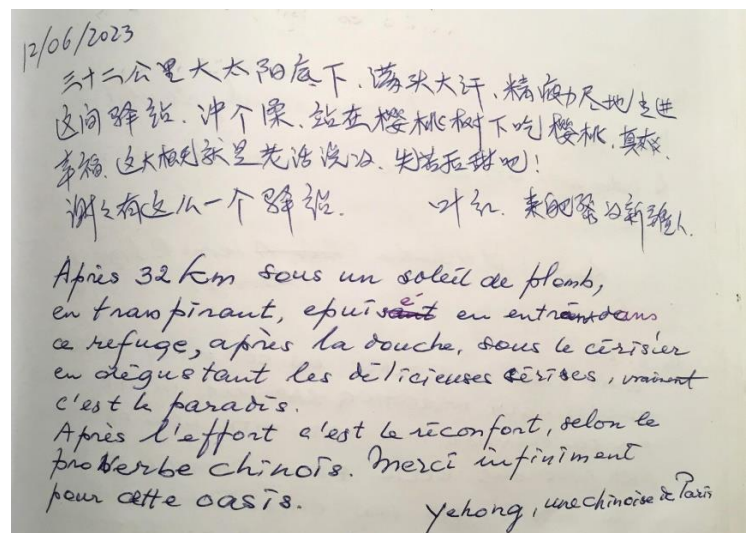 12/06/2023
三十二公里大太阳底下、满头大汗、精疲力尽地走进
这间驿站. 冲个澡、站在樱桃树下吃樱桃, 真
幸福. 这大概就是老话说的、先苦后甜吧!
谢谢有这么一个驿站. 叶红.
Après 32 km sous un soleil de plomb,
en transpirant, epuisé en entrant dans
ce refuge, après la douche, sous le cérisier
en dégustant les délicieuses cérises, vraiment
c'est le paradis.
Après l'effort c'est le réconfort, selon le
proverbe chinois. Merci infiniment
pour cette oasis.
Yehong, une chinoise de Paris